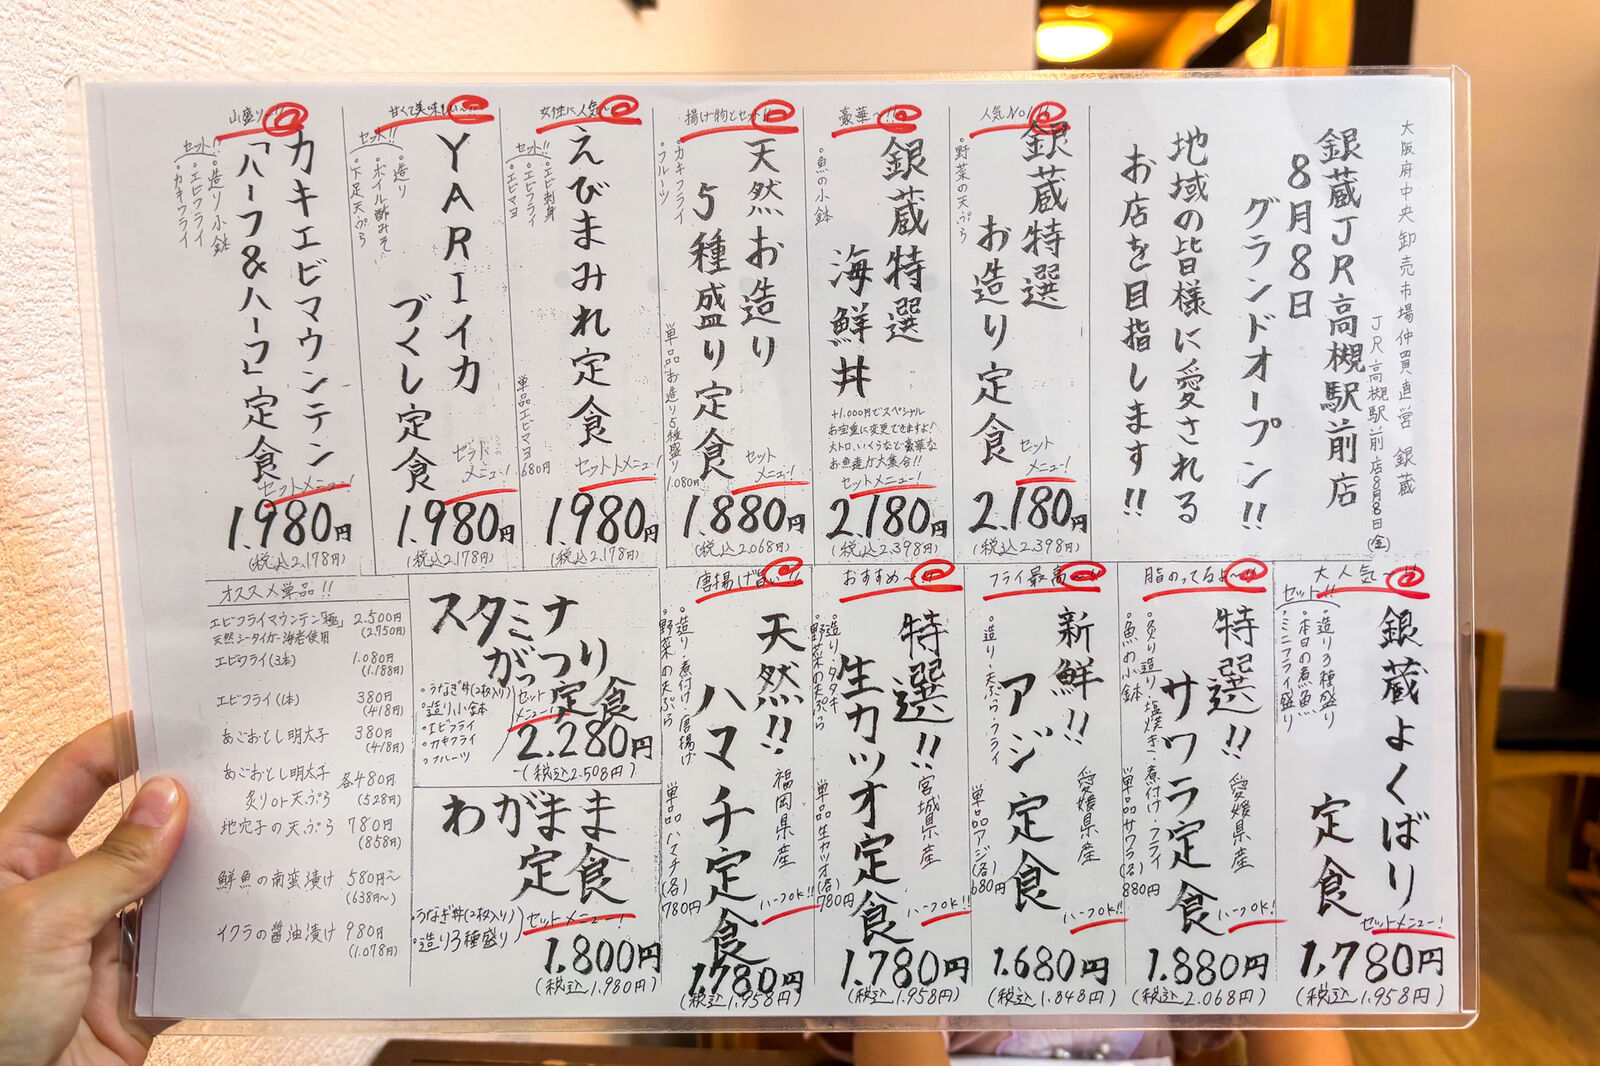 大阪府中央卸売市場仲買直営 銀蔵
JR高槻駅前店8月8日(金)
銀蔵JR高槻駅前店
8月8日
グランドオープン!!
地域の皆様に愛される
お店を目指します!!
人気No1!!
銀蔵特選
お造り定食
・野菜の天ぷら
セット
メニュー!
2.180円
(税込2.398円)
豪華〜!!
銀蔵特選
海鮮丼
・魚の小鉢
+1.000円でスペシャル
お宝重に変更できますよ!
大トロ、いくらなど豪華な
お魚達が大集合!!
セットメニュー!
2.180円
(税込2.398円)
揚げ物とセット!!
天然お造り
5種盛り定食
・カキフライ
・フルーツ
単品お造り5種盛り
1.080円
セット
メニュー!
1.880円
(税込2.068円)
女性に人気〜
えびまみれ定食
セット!!
・エビ刺身
・エビフライ
・エビマヨ
単品エビマヨ
680円
セットメニュー!
1.980円
(税込2.178円)
甘くて美味しい〜!!
YARIイカ
づくし定食
セット!!
・造り
・ボイル酢みそ
・下足天ぷら
メニュー!
1.980円
(税込2.178円)
山盛り〜!!
カキエビマウンテン
「ハーフ&ハーフ」定食
セット!!
・造り小鉢
・エビフライ
・カキフライ
セットメニュー!
1.980円
(税込2.178円)
大人気〜!!
銀蔵よくばり
定食
セット!!
・造り3種盛り
・本日の煮魚
・ミニフライ盛り
セットメニュー!
1,780円
(税込1.958円)
脂のってるよ〜!!
特選!!
サワラ定食
愛媛県産
・炙り造り・塩焼き・煮付け・フライ
・魚の小鉢
単品サワラ(各)
880円
ハーフOK!!
1.880円
(税込2.068円)
フライ最高〜!!
新鮮!!
アジ定食
愛媛県産
・造り・天ぷら・フライ
単品アジ(各)
680円
ハーフOK!!
1.680円
(税込1.848円)
おすすめ〜!!
特選!!
生カツオ定食
宮城県産
・造り・タタキ
・野菜の天ぷら
単品生カツオ(各)
780円
ハーフOK!!
1.780円
(税込1.958円)
唐揚げ旨い!!
天然!!
ハマチ定食
福岡県産
・造り・煮付け・唐揚げ
・野菜の天ぷら
単品ハマチ(各)
780円
ハーフOK!!
1.780円
(税込1.958円)
スタミナ
がっつり
定食
・うなぎ丼(2枚入り)
・造り小鉢
・エビフライ
・カキフライ
・フルーツ
セット
メニュー!
2.280円
(税込2.508円)
わがまま
定食
・うなぎ丼(2枚入り)
・造り3種盛り
セットメニュー!
1.800円
(税込1.980円)
オススメ単品!!
エビフライマウンテン「極」 2.500円
天然シータイガー海老使用 (2.750円)
エビフライ(3本) 1.080円
(1.188円)
エビフライ(1本) 380円
(418円)
あごおとし明太子 380円
(418円)
あごおとし明太子 各480円
炙りor天ぷら (528円)
地穴子の天ぷら 780円
(858円)
鮮魚の南蛮漬け 580円〜
(638円〜)
イクラの醤油漬け 980円
(1.078円)